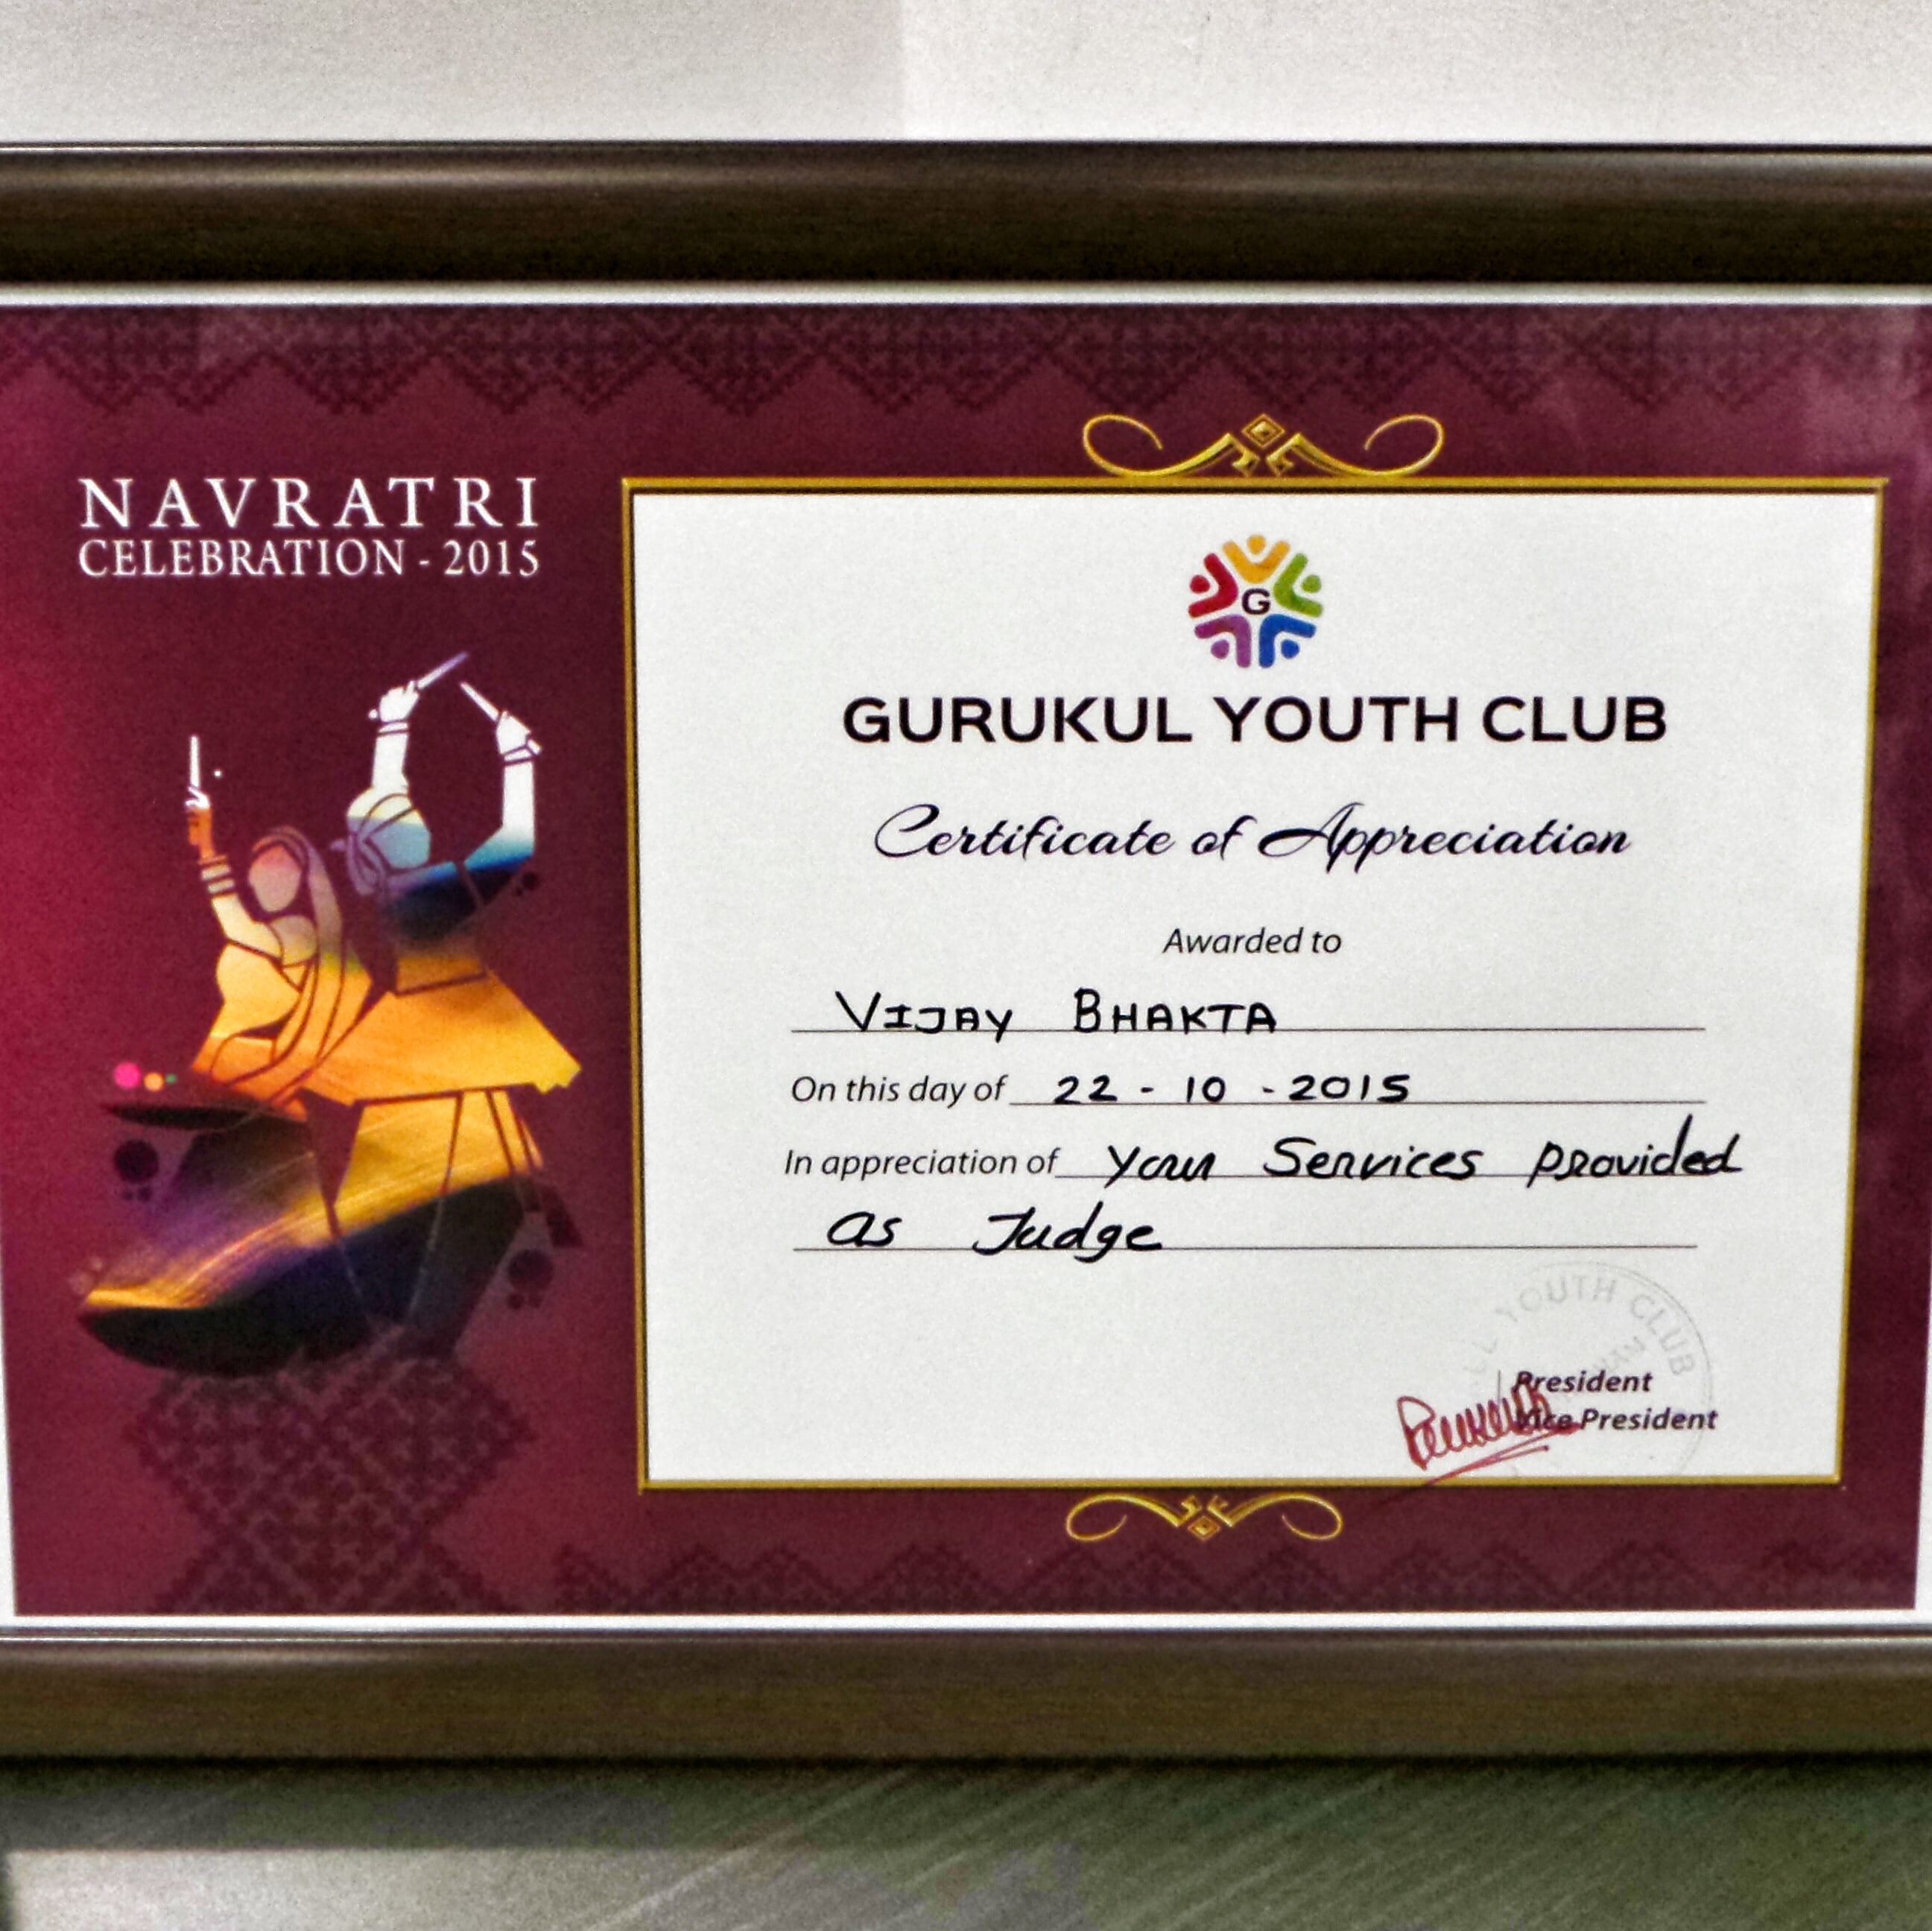 NAVRATRI
CELEBRATION - 2015
G
GURUKUL YOUTH CLUB
Certificate of Appreciation
Awarded to
VIJAY BHAKTA
On this day of 22 - 10 - 2015
In appreciation of your Services provided
as Judge
YOUTH CLUB
President
Vice President